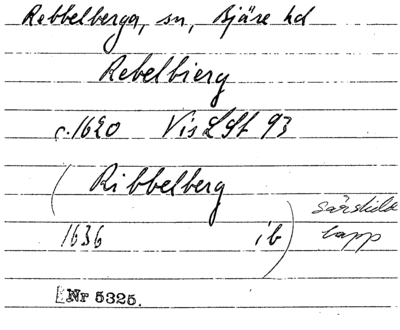 Rebbelberga, sn, Bjäre hd
Rebelbierg
c. 1620 Vis LSt 93
(Ribbelberg
1636 ib)
särskild
lapp
Nr 5325.